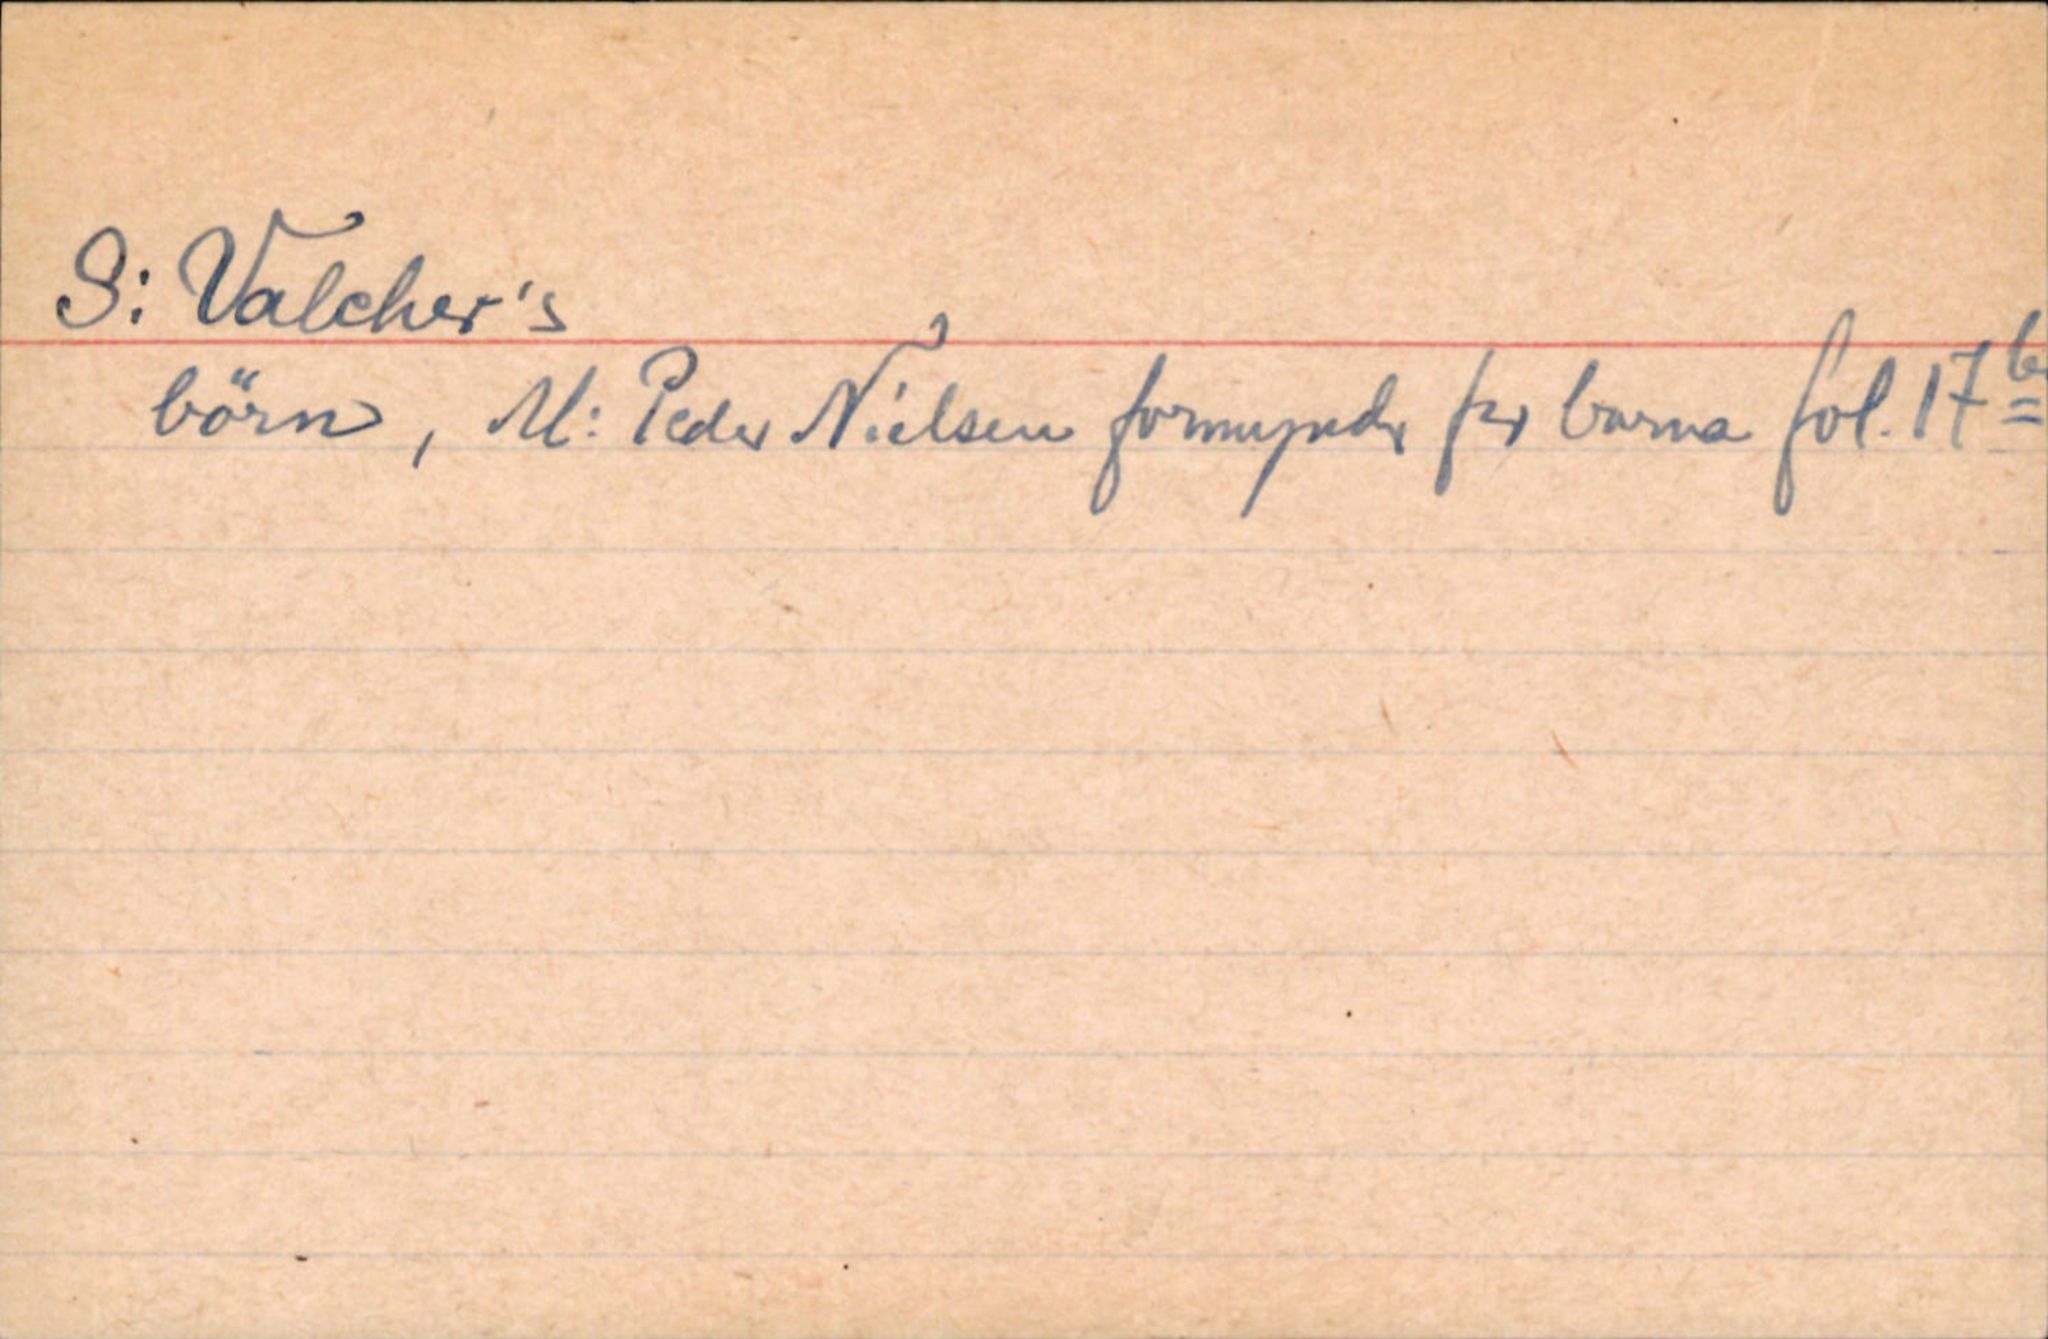 S: Valcher's
börn, M: Peder Nielsen formynder for barna fol. 17b